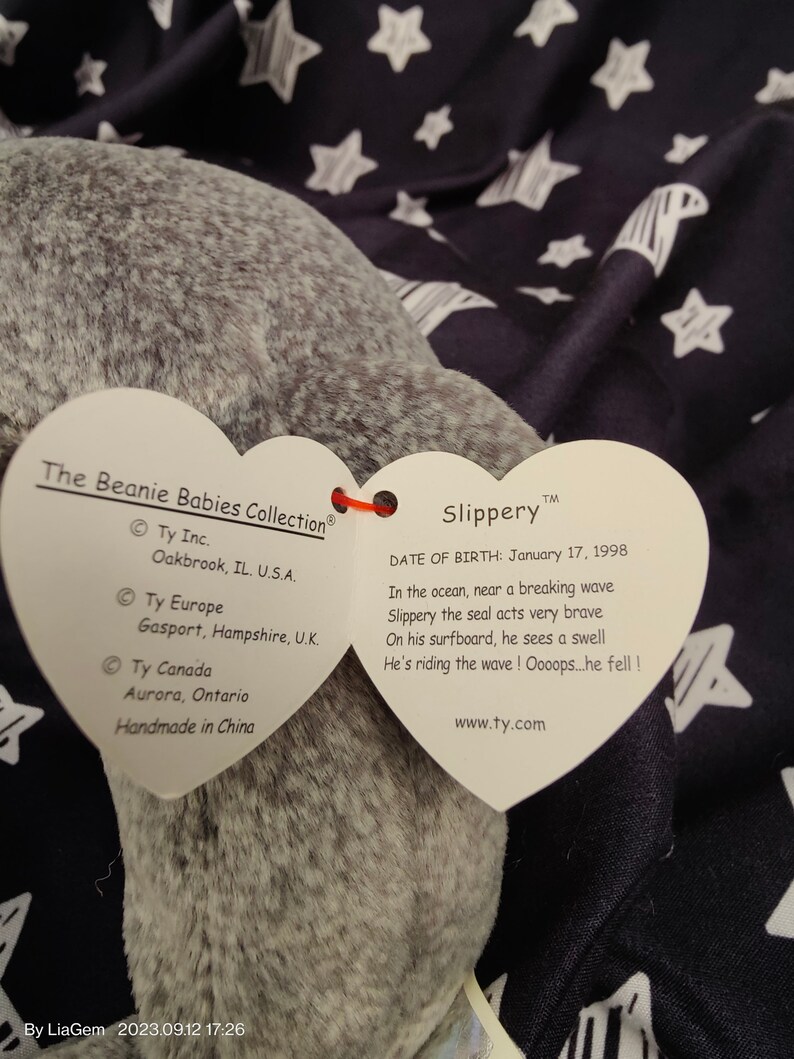 The Beanie Babies Collection®
© Ty Inc.
Oakbrook, IL. U.S.A.
© Ty Europe
Gasport, Hampshire, U.K.
© Ty Canada
Aurora, Ontario
Handmade in China
Slippery™
DATE OF BIRTH: January 17, 1998
In the ocean, near a breaking wave
Slippery the seal acts very brave
On his surfboard, he sees a swell
He's riding the wave ! Oooops...he fell !
www.ty.com
By LiaGem 2023.09.12 17:26